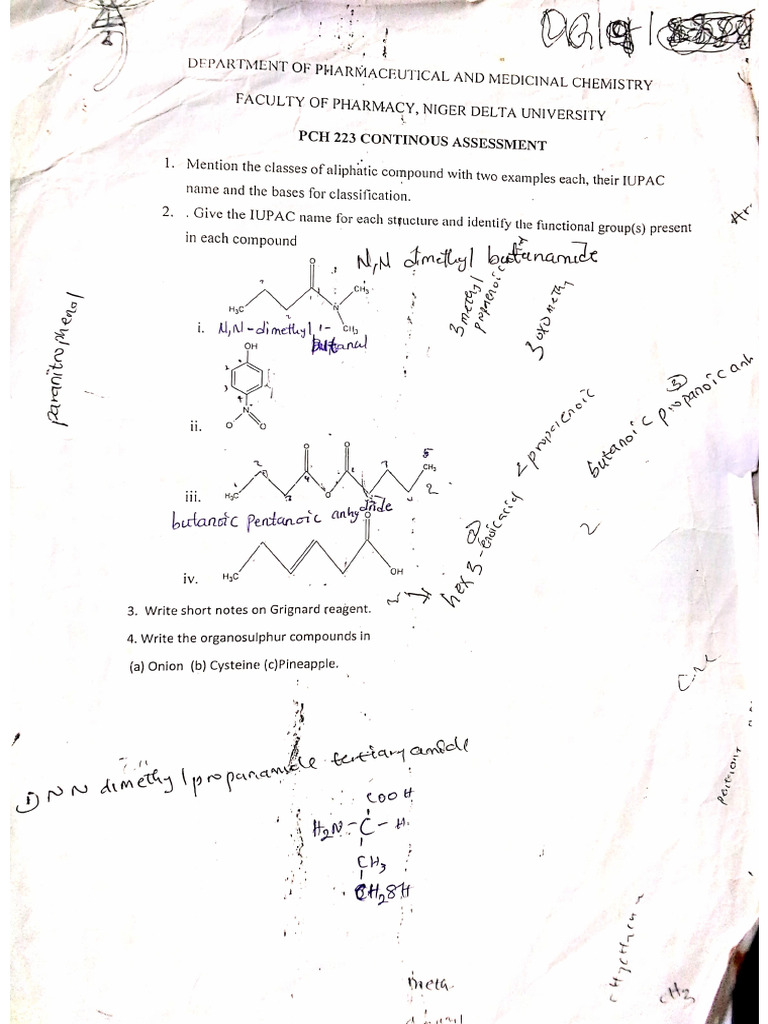 DG/19/
DEPARTMENT OF PHARMACEUTICAL AND MEDICINAL CHEMISTRY
FACULTY OF PHARMACY, NIGER DELTA UNIVERSITY
PCH 223 CONTINOUS ASSESSMENT
1. Mention the classes of aliphatic compound with two examples each, their IUPAC
name and the bases for classification.
2. . Give the IUPAC name for each structure and identify the functional group(s) present
in each compound
N,N dimethyl butanamide
O
CH₃
H₃C
N
CH₃
i. N,N-dimethyl 1-
butanal
3 methyl
propenoic
3 oxo methy
paranitrophenol
OH
N
O
O
ii.
O
O
5
CH₃
iii. H₃C
O
2
butanoic pentanoic anhydride
butanoic propanoic anh
3
2
propenoic
O
iv. H₃C
OH
2
hex 3-enoic acid
3. Write short notes on Grignard reagent.
4. Write the organosulphur compounds in
(a) Onion (b) Cysteine (c)Pineapple.
i) N N dimethyl propanamide tertiary amide
COOH
H₂N-C-H
CH₃
CH₂SH
meta
CH₃